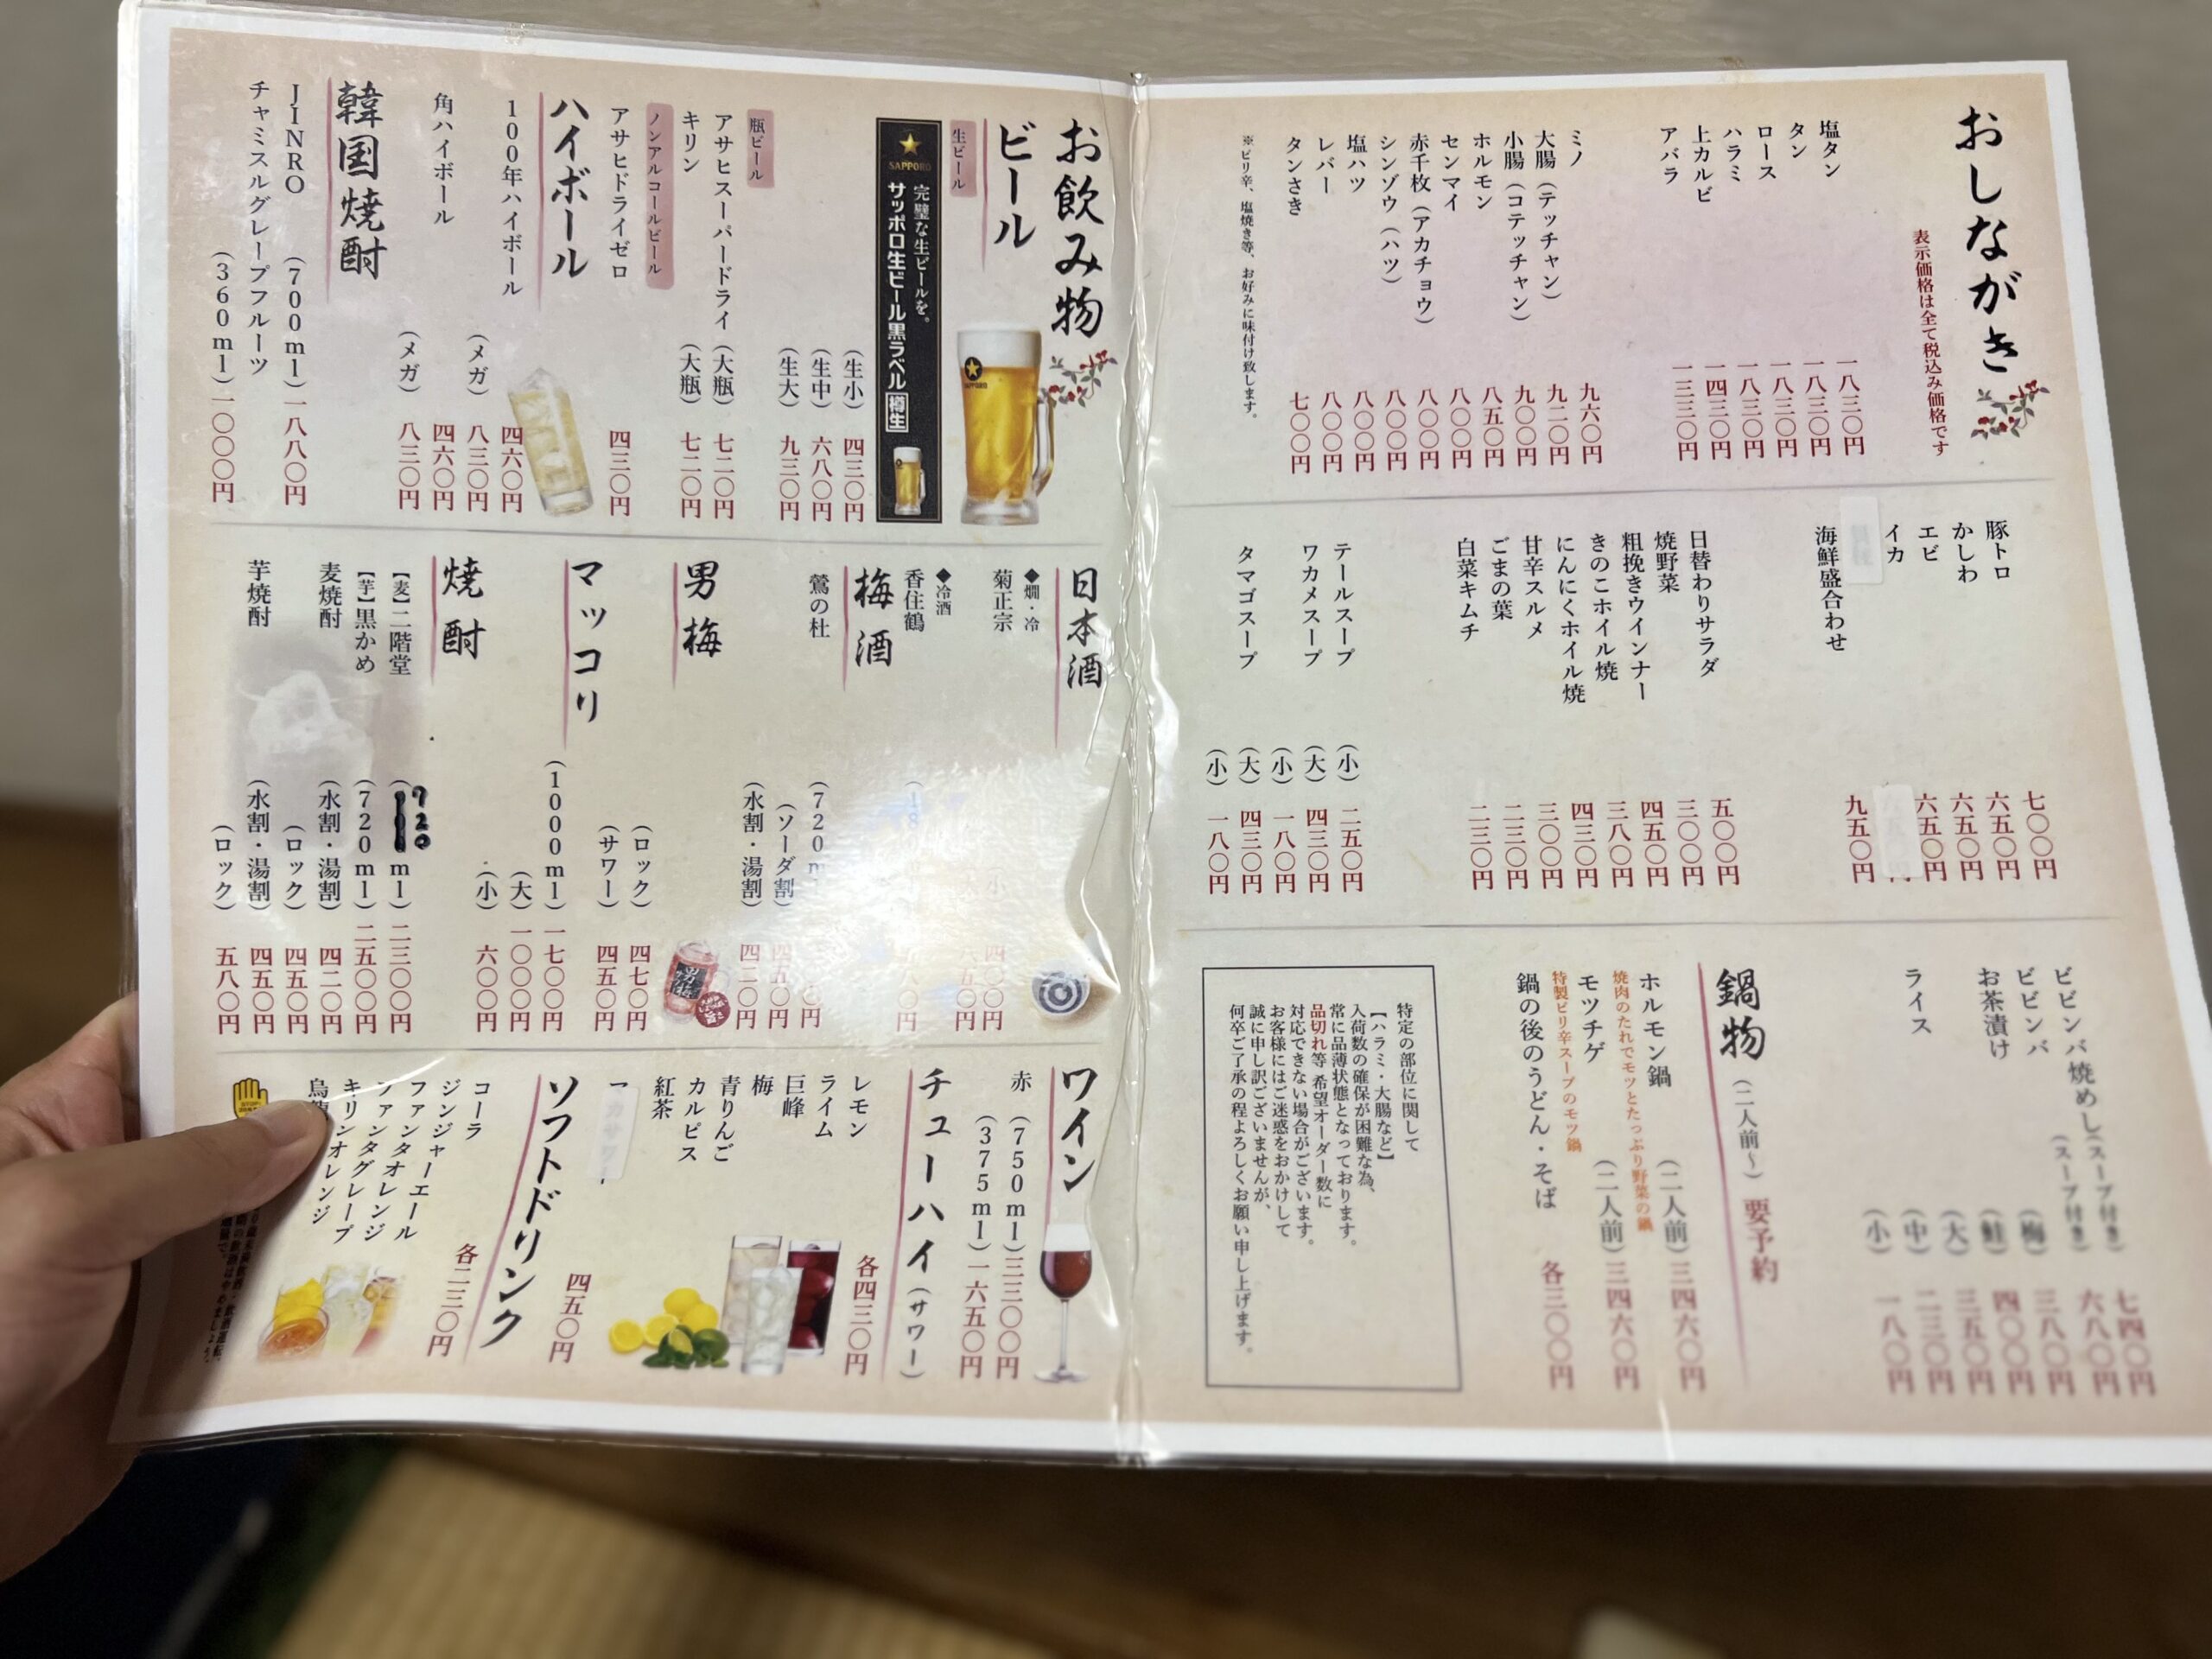 おしながき
表示価格は全て税込み価格です
塩タン 一八三〇円
タン 一八三〇円
ロース 一八三〇円
ハラミ 一八三〇円
上カルビ 一四三〇円
アバラ 一三三〇円
ミノ 九六〇円
大腸(テッチャン) 九二〇円
小腸(コテッチャン) 九〇〇円
ホルモン 八五〇円
センマイ 八〇〇円
赤千枚(アカチョウ) 八〇〇円
シンゾウ(ハツ) 八〇〇円
塩ハツ 八〇〇円
レバー 八〇〇円
タンさき 七〇〇円
※ピリ辛、塩焼き等、お好みに味付け致します。
豚トロ 七〇〇円
かしわ 六五〇円
エビ 六五〇円
イカ 六五〇円
海鮮盛合わせ 九五〇円
日替わりサラダ 五〇〇円
焼野菜 三〇〇円
粗挽きウインナー 四五〇円
きのこホイル焼 三八〇円
にんにくホイル焼 四三〇円
甘辛スルメ 三〇〇円
ごまの葉 二三〇円
白菜キムチ 二三〇円
テールスープ (小) 二五〇円
ワカメスープ (大) 四三〇円
(小) 一八〇円
タマゴスープ (大) 四三〇円
(小) 一八〇円
ビビンバ焼めし(スープ付き) 七四〇円
ビビンバ (スープ付き) 六八〇円
お茶漬け (梅) 三八〇円
(鮭) 四〇〇円
ライス (大) 三五〇円
(中) 二三〇円
(小) 一八〇円
鍋物(二人前〜) 要予約
ホルモン鍋 (二人前) 三四六〇円
焼肉のたれでモツとたっぷり野菜の鍋
モツチゲ (二人前) 三四六〇円
特製ピリ辛スープのモツ鍋
鍋の後のうどん・そば 各三〇〇円
特定の部位に関して
【ハラミ・大腸など】
入荷数の確保が困難な為、
常に品薄状態となっております。
品切れ等 希望オーダー数に
対応できない場合がございます。
お客様にはご迷惑をおかけして
誠に申し訳ございませんが、
何卒ご了承の程よろしくお願い申し上げます。
お飲み物
ビール
生ビール
SAPPORO
完璧な生ビールを。
サッポロ生ビール黒ラベル 樽生
SAPPORO
(生小) 四三〇円
(生中) 六八〇円
(生大) 九三〇円
瓶ビール
アサヒスーパードライ(大瓶) 七二〇円
キリン (大瓶) 七二〇円
ノンアルコールビール
アサヒドライゼロ 四三〇円
ハイボール
100年ハイボール 四六〇円
(メガ) 八三〇円
角ハイボール 四六〇円
(メガ) 八三〇円
韓国焼酎
JINRO (700ml)一八八〇円
チャミスルグレープフルーツ
(360ml)一〇〇〇円
日本酒
◆燗・冷
菊正宗
四〇〇円
◆冷酒
香住鶴
梅酒
鶯の杜
(ソーダ割)
(水割・湯割) 四二〇円
男梅
男梅
(ロック) 四七〇円
(サワー) 四五〇円
マッコリ
(1000ml) 一七〇〇円
(大) 一〇〇〇円
(小) 六〇〇円
焼酎
【麦】二階堂 (720ml) 二三〇〇円
【芋】黒かめ (720ml) 二五〇〇円
麦焼酎 (水割・湯割) 四二〇円
(ロック) 四五〇円
芋焼酎 (水割・湯割) 四五〇円
(ロック) 五八〇円
ワイン
赤 (750ml)三三〇〇円
(375ml)一六五〇円
チューハイ(サワー)
レモン
ライム
巨峰
梅
青りんご
カルピス
紅茶
各四三〇円
四五〇円
ソフトドリンク
コーラ
ジンジャーエール
ファンタオレンジ
ファンタグレープ
キリンオレンジ
各二三〇円